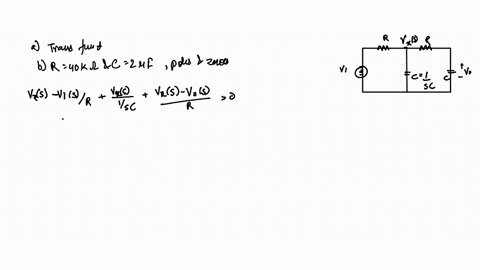 a) Transfund
b) R = 40KΩ & C = 2μf , poles & zeros
Vx(s) - V1(s)/R + Vx(s)/1/SC + Vx(s) - V0(s)/R = 0
R Vx(s) R
V1 C = 1/SC C + V0 -